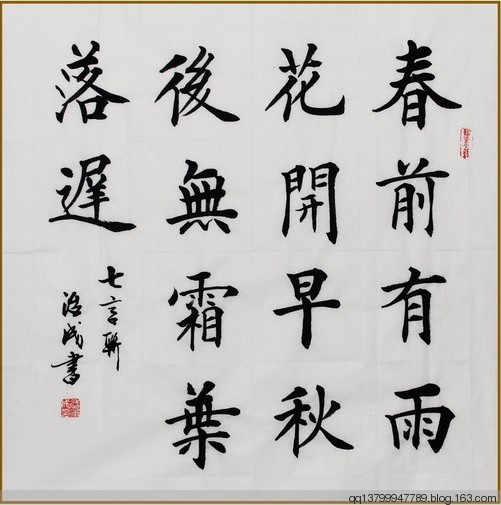 春前有雨
花開早秋
後無霜葉
落遲
七言聯
治成書
qq13799947789.blog.163.com